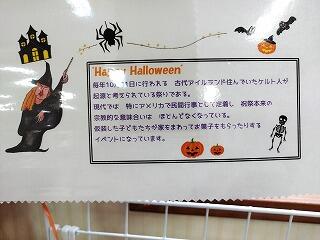 "Happy Halloween"
毎年10月31日に行われる 古代アイルランド住んでいたケルト人が
起源と考えられている祭りである。
現代では 特にアメリカで民間行事として定着し 祝祭本来の
宗教的な意味合いは ほとんどなくなっている。
仮装した子どもたちが家をまわってお菓子をもらったりする
イベントになっています。